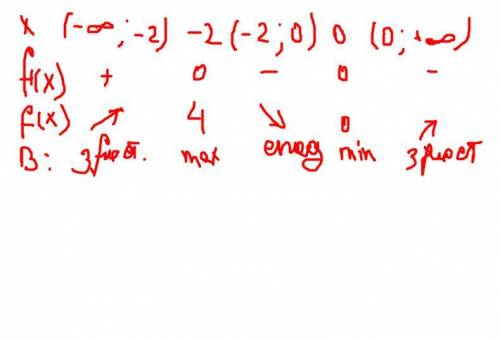 x (-∞; -2) -2 (-2; 0) 0 (0; +∞)
f'(x) + 0 - 0 -
f(x) ↗ 4 ↘ 0 ↗
В: зрост. max спад min зрост